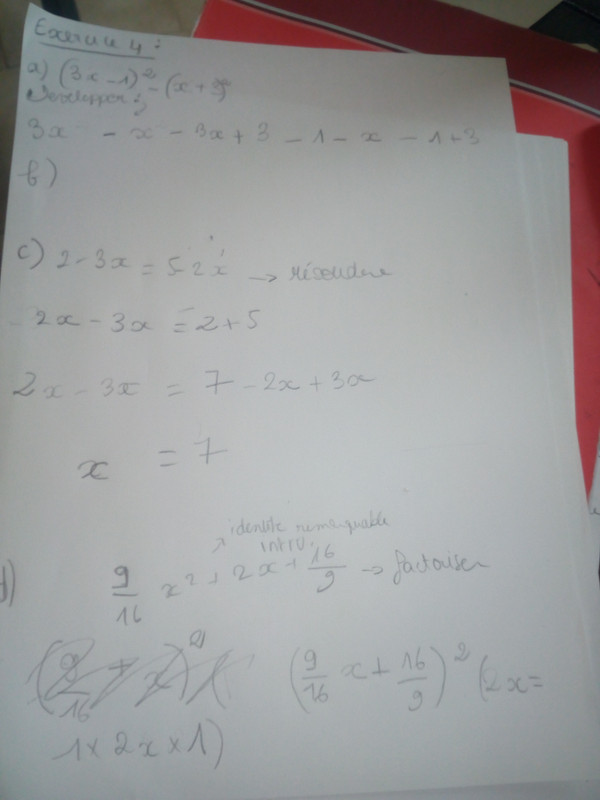 Exercice 4:
a) (3x-1)² - (x+3)²
Developper:
3x - x - 3x + 3 - 1 - x - 1 + 3
b)
c) 2-3x = 5-2x → résoudre
2x - 3x = 2+5
2x - 3x = 7 - 2x + 3x
x = 7
identité remarquable
d) 9/16 x² + 2x + 16/9 → factoriser
(9/16 x + 16/9)² (2x =
1 × 2x × 1)